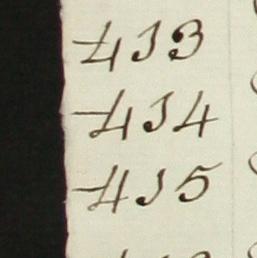 413
414
415